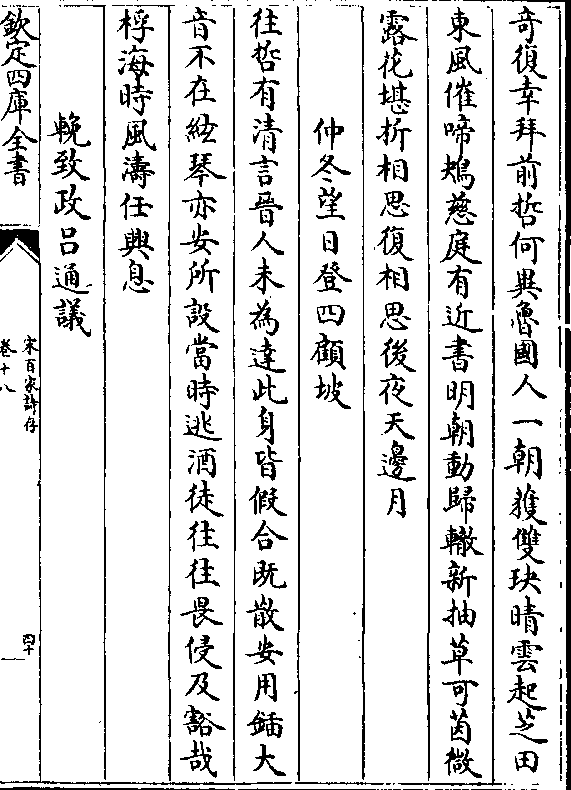 奇復幸拜前哲何異魯國人一朝獲雙玦晴雲起芝田
東風催啼鴂慈庭有近書明朝動歸轍新抽草可茵微
露花堪折相思復相思後夜天邊月
仲冬望日登四顧坡
往哲有清言晉人未為達此身皆假合既散安用鍤大
音不在絃琴亦安所設當時逃酒徒往往畏侵及豁哉
桴海時風濤任興息
輓致政吕通議
欽定四庫全書
宋百家詩存
卷十八
四十